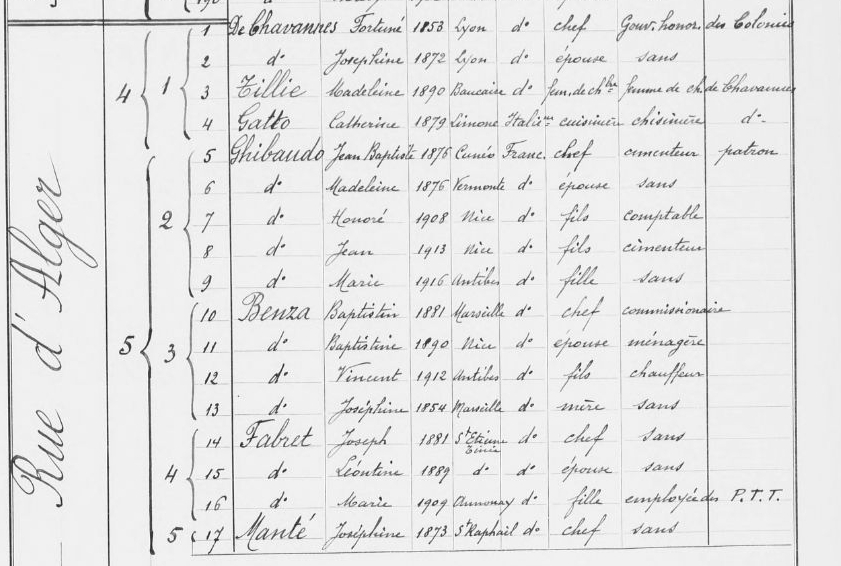 1 De Chavannes Fortuné 1853 Lyon d° chef Gouv. honor. des Colonies
2 d° Josephine 1872 Lyon d° épouse sans
4 1 3 Tillie Madeleine 1890 Baucaire d° fem. de chbre femme de ch. de Chavannes
4 Gatto Catherine 1879 Limone Italienne cuisinière chisinière d°-
5 Ghibaudo Jean Baptiste 1876 Cunéo Franc. chef cimenteur patron
6 d° Madeleine 1876 Vermonte d° épouse sans
2 7 d° Honoré 1908 Nice d° fils comptable
8 d° Jean 1913 Nice d° fils cimenteur
9 d° Marie 1916 Antibes d° fille sans
10 Benza Baptistin 1881 Marseille d° chef commissionaire
5 3 11 d° Baptistine 1890 Nice d° épouse ménagère
12 d° Vincent 1912 Antibes d° fils chauffeur
13 d° Joséphine 1854 Marseille d° mère sans
14 Fabret Joseph 1881 St Etienne Tinée d° chef sans
4 15 d° Léontine 1889 d° d° épouse sans
16 d° Marie 1909 Annonay d° fille employée des P.T.T.
5 17 Manté Joséphine 1873 St Raphaël d° chef sans
Rue d'Alger